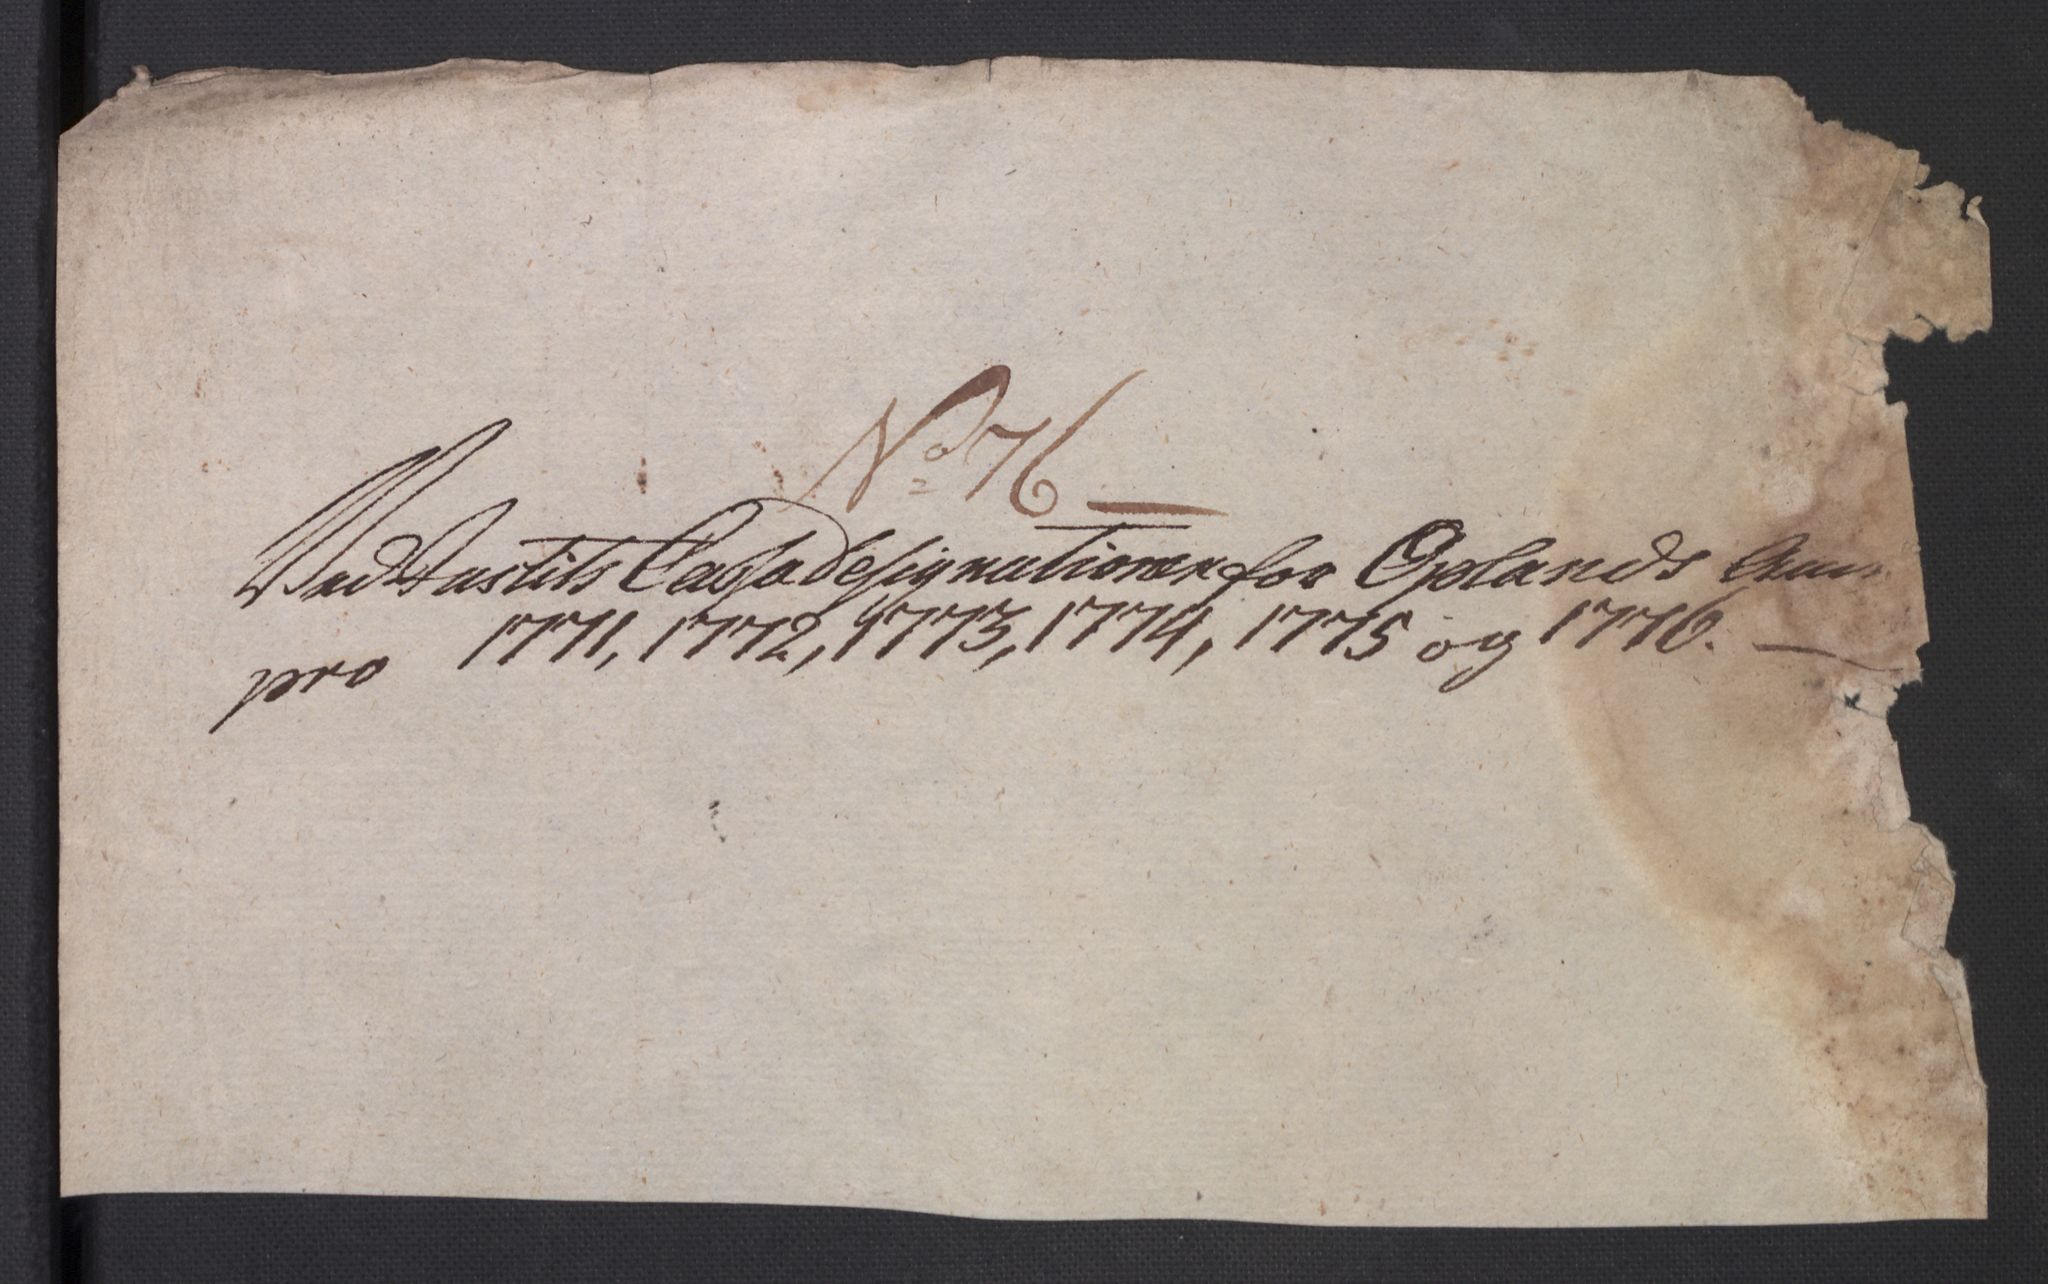 No 76
Ved Justits Cassa designationer for Oplands
pro 1771, 1772, 1773, 1774, 1775 og 1776.